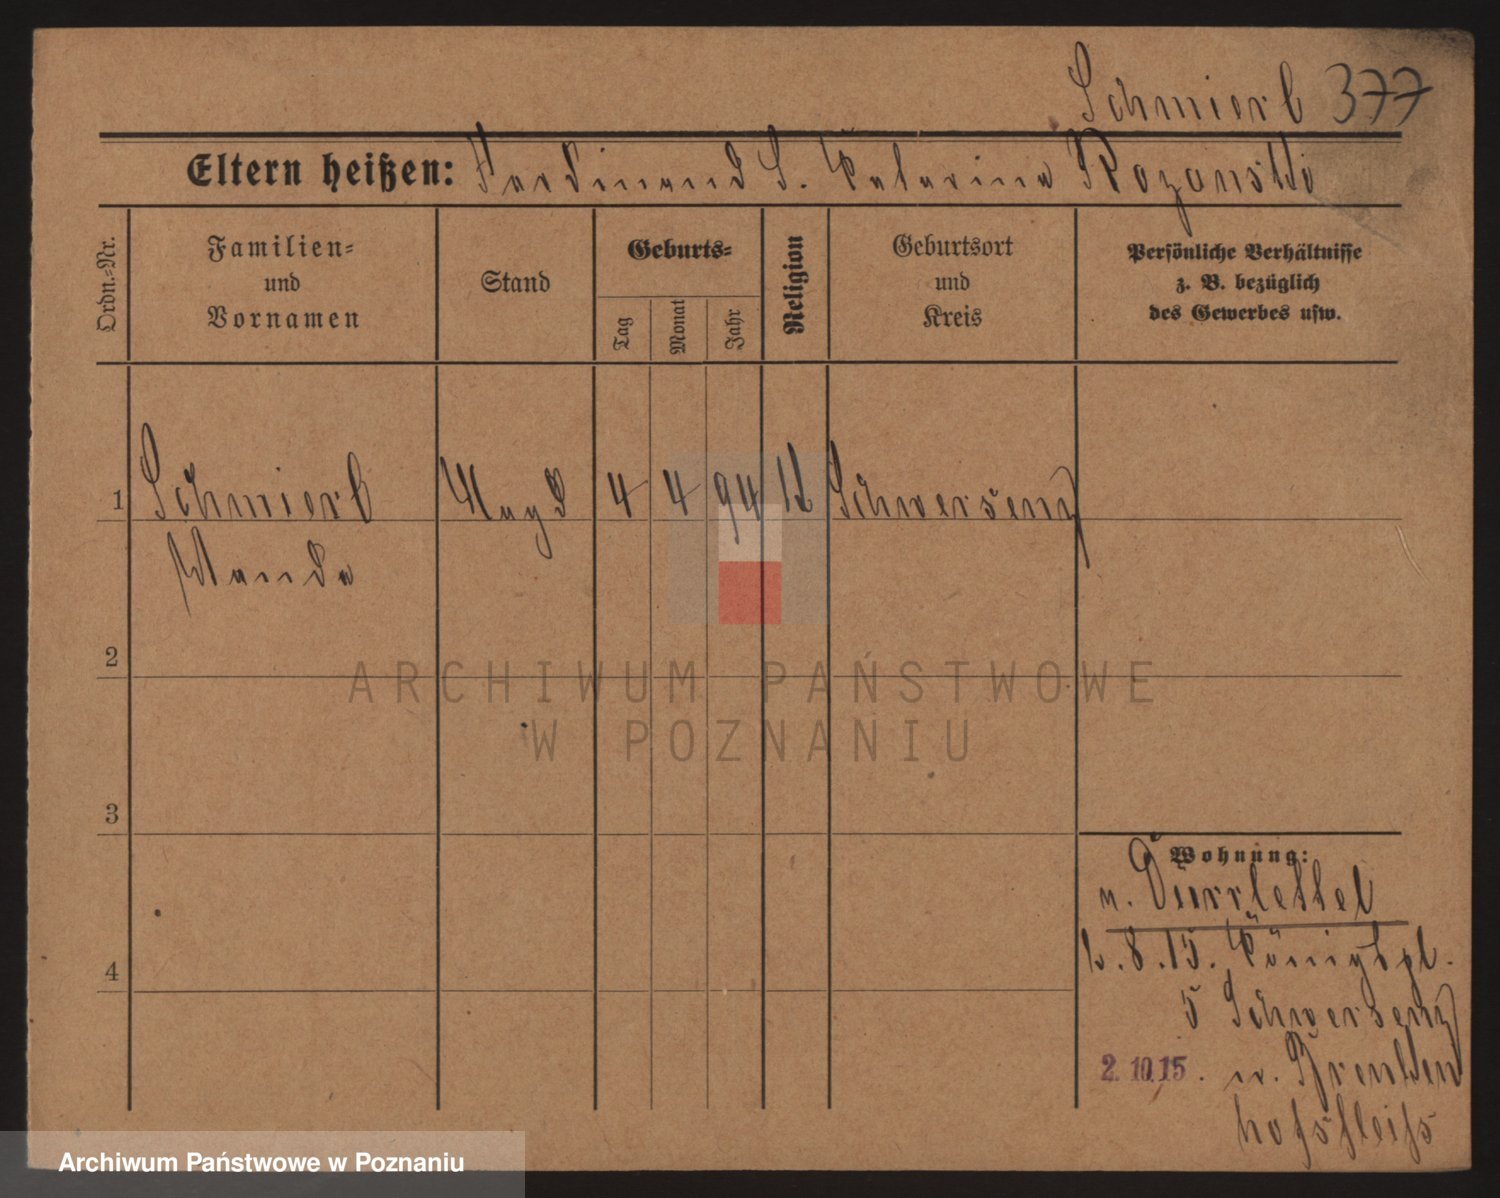 Schmierl 377
Eltern heißen: Ferdinand S. Katarina Rozanski
Ordn.-Nr.
Familien-
und
Vornamen
Stand
Geburts-
Tag
Monat
Jahr
Religion
Geburtsort
und
Kreis
Persönliche Verhältnisse
z. B. bezüglich
des Gewerbes usw.
1 Schmierl Magd 4 4 94 k Schwersenz
Wanda
2
3
4
Wohnung:
n. Dürrlettel
8.15. Königspl.
5 Schwersenz
2.10.15.
ARCHIWUM PAŃSTWOWE
W POZNANIU
Archiwum Państwowe w Poznaniu